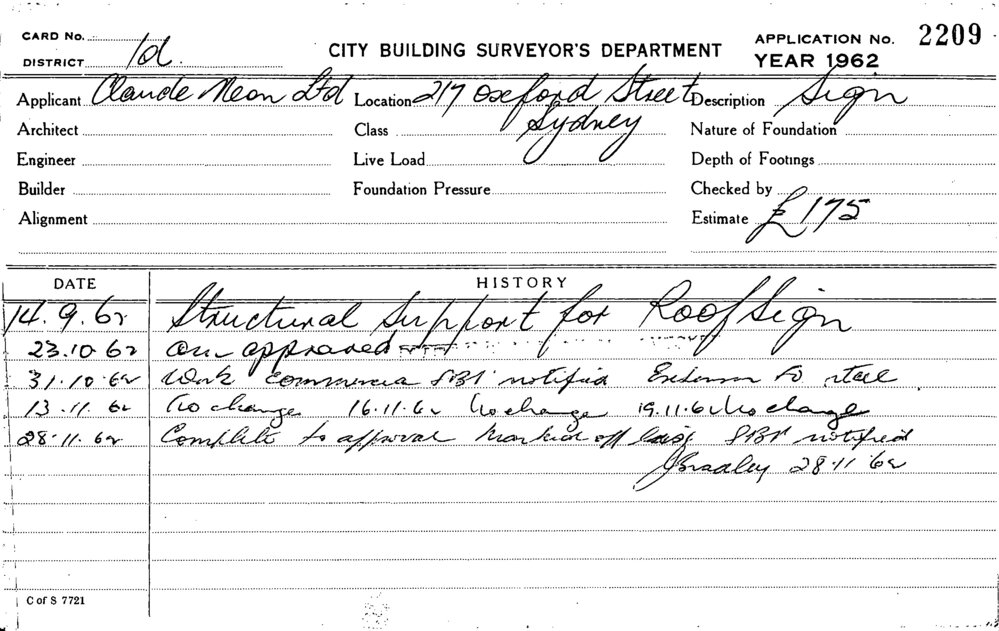 CARD No.
DISTRICT 1d.
CITY BUILDING SURVEYOR'S DEPARTMENT
APPLICATION No. 2209
YEAR 1962
Applicant Claude Neon Ltd Location 217 Oxford Street Description Sign
Architect Class Sydney Nature of Foundation
Engineer Live Load Depth of Footings
Builder Foundation Pressure Checked by
Alignment Estimate £175
DATE HISTORY
14.9.62 Structural Support for Roof Sign
23.10.62 approved
31.10.62 Work notified
13.11.62 No change 16.11.62 No change 19.11.62 No change
28.11.62 Complete to approval marked off notified
JBradley 28.11.62
C of S 7721